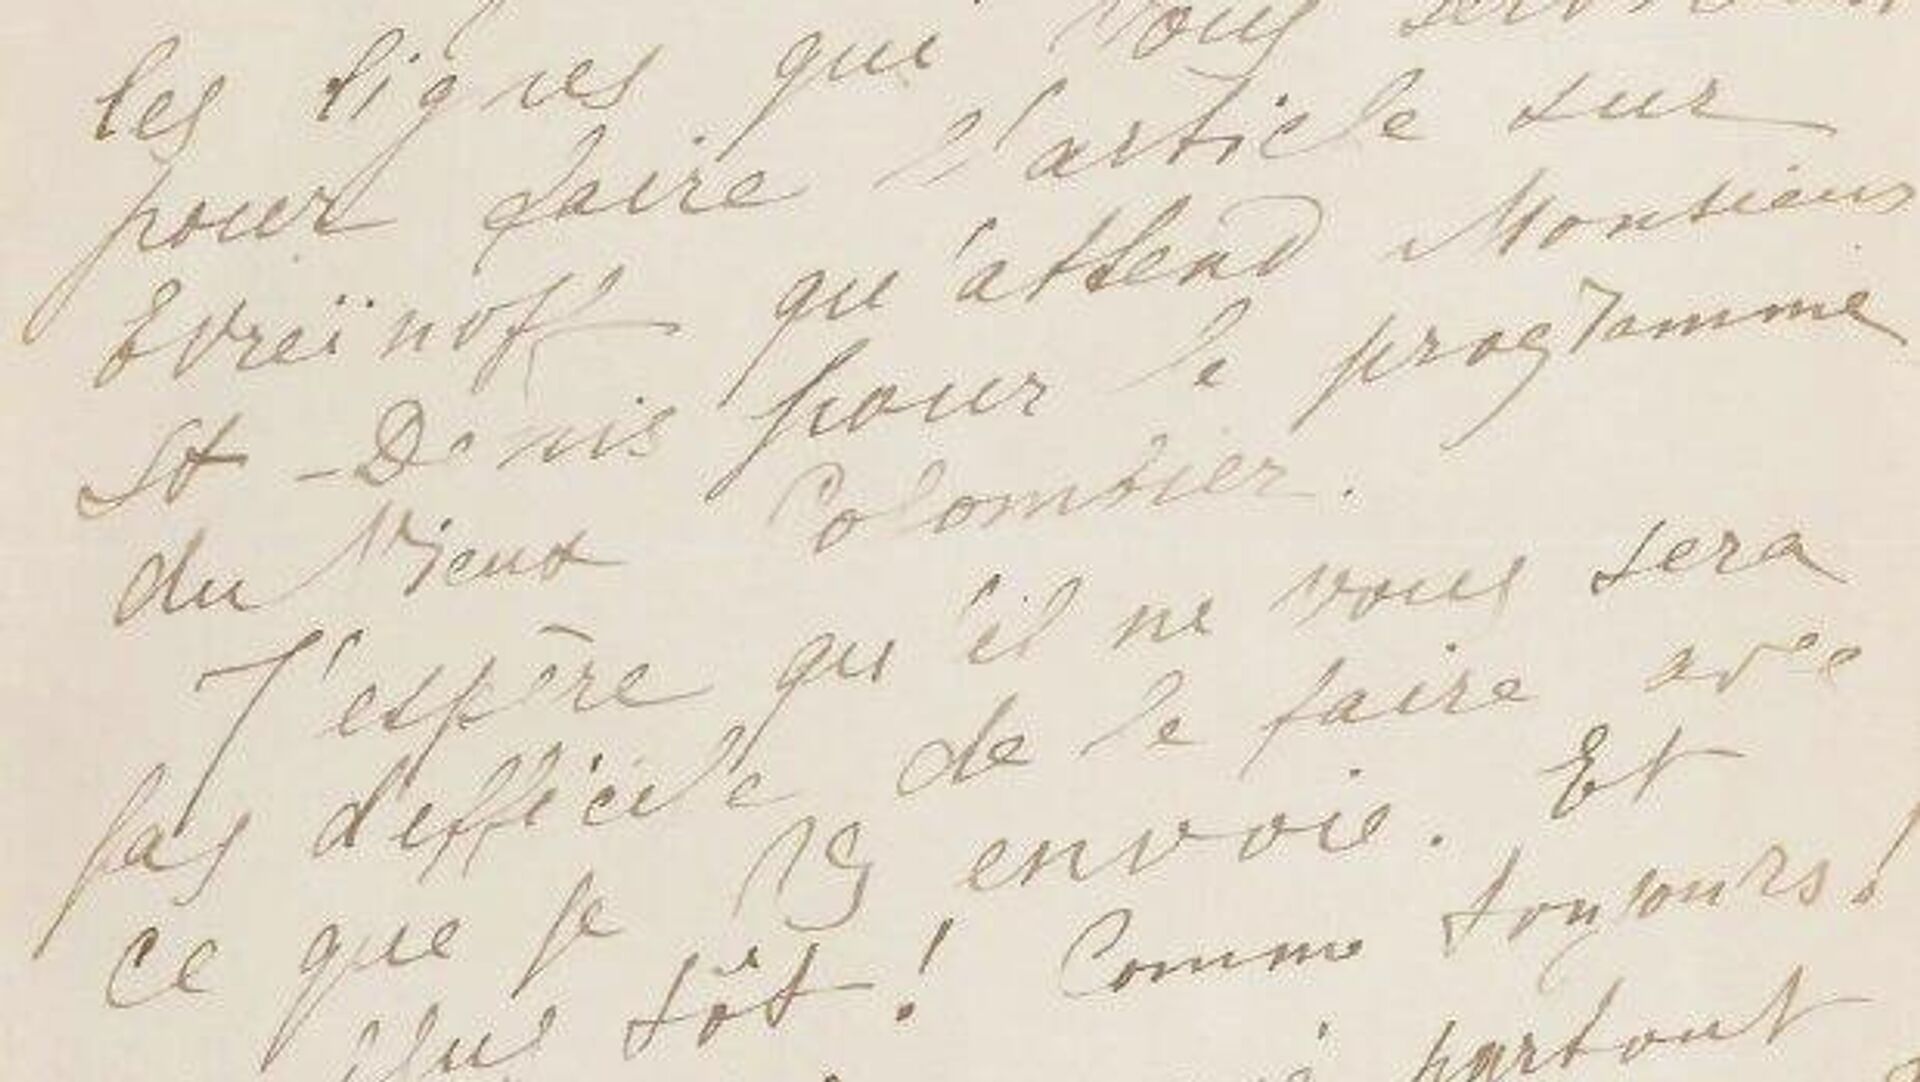 les lignes qui vous
pour faire l'article sur
Evreïnoff qu'attend Monsieur
St-Denis pour le programme
du Vieux Colombier.
J'espère qu'il ne vous sera
pas difficile de le faire avec
ce que je vs envoie. Et
plus tôt ! Comme toujours !
partout